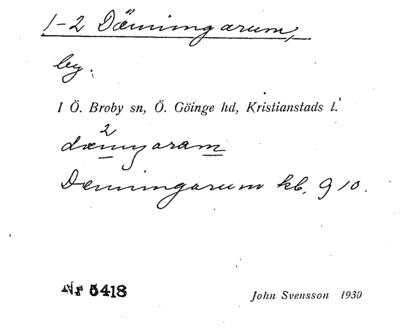 1-2 Dänningarum,
beg.
I Ö. Broby sn, Ö. Göinge hd, Kristianstads l.
2
dænŋaram
Denningarum kb. 9 10.
Nr 5418
John Svensson 1930